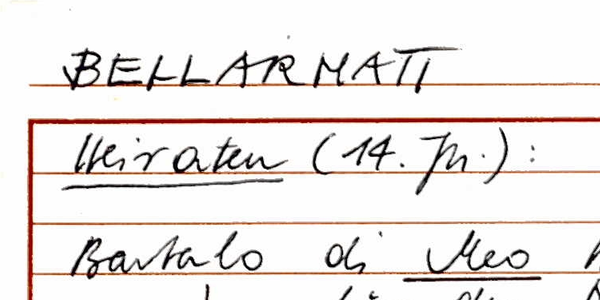 BELLARMATI
Heiraten (14. Jh.):
Bartalo di Meo